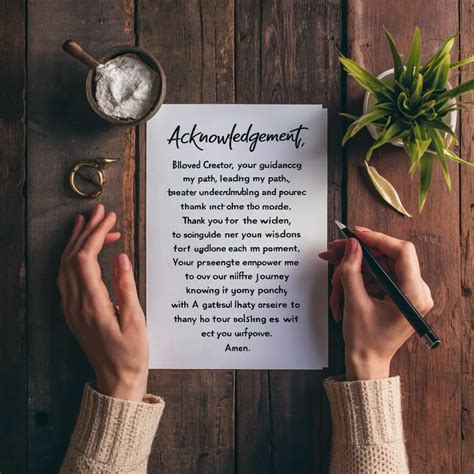 Acknowledgement,
Blloved Cretor, your guidanccg
my path, leading my path,
beater undercdmlbing and pourec
thank inct ohe too morde.
Thank you for the wiclen,
to soinguide ner your wisdons
forf ugdlone each m porment.
Your preseengte empower me
to ouv our niffre journey
knowing ir yomy ponchy,
with A gatesful lhaty orseire to
thany ho tour bolsing es wit
ect you uirfpoıve.
Amen.